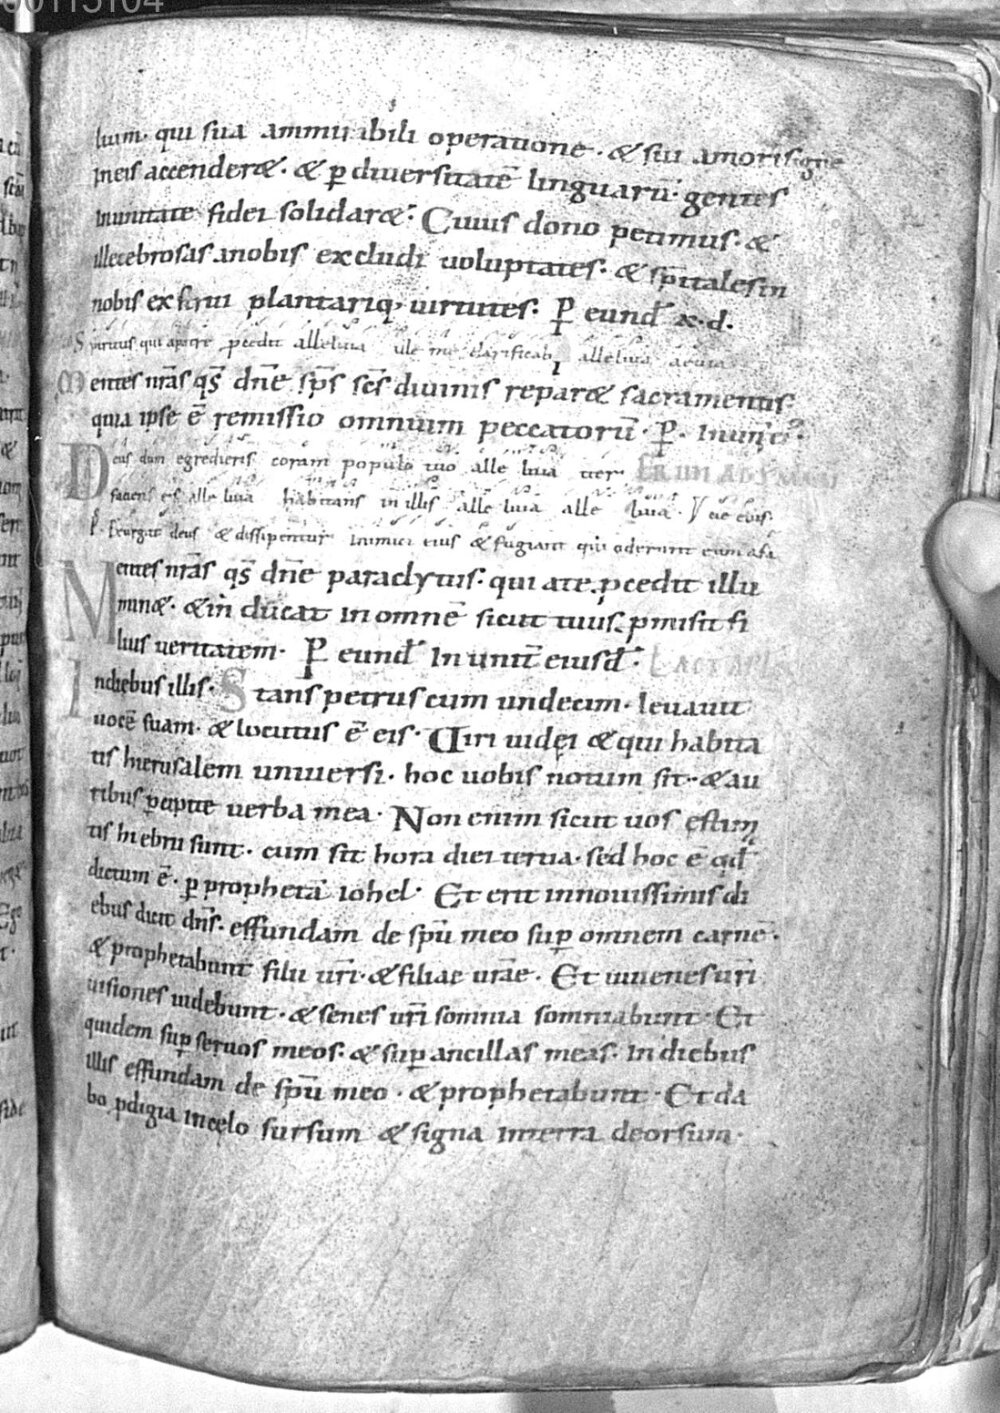 00115104
luam. qui sua ammirabili operatione. & sui amoris igne
ineis accenderæ. & ꝑ diuersitatē linguarū. gentes
inunitate fidei solidaræ. Cuius dono petimus. &
illecebrosas anobis excludi uoluptates. & sp̄itales in
nobis ex strui plantariq; uirtutes. P eund̄ x. d.
Spiritus qui apatre ꝓcedit alleluia ille me clarificab alleluia aeuia
Mentes nr̄as qs̄ dn̄e sp̄s sc̄s diuinis reparæ sacramentis.
quia ipse ē remissio omnium peccatorū. P. Inunit̄.
Deus dum egredieris coram populo tuo alle luia iter FER III AD S MARI
faciens eis alle luia habitans in illis alle luia alle luia. V eie euis.
P. Exurgat deus & dissipentur inimici eius & fugiant qui oderunt eum afa
Mentes nr̄as qs̄ dn̄e paraclytus. qui ate ꝓcedit illu
minæ. & in ducat in omnē sicut tuus ꝓmisit fi
lius ueritatem. P eund̄ In unit̄ eiusd̄. L ACT APL
Indiebus illis. Stans petrus cum undecim. leuauit
uocē suam. & locutus ē eis. Uiri iudęi & qui habita
tis hierusalem uniuersi. hoc uobis notum sit. & au
ribus ꝑcipite uerba mea. Non enim sicut uos ęstima
tis hi ebrii sunt. cum sit hora diei tertia. sed hoc ē qd̄
dictum ē. ꝑ prophetā iohel. Et erit innouissimis di
ebus dicit dn̄s. effundam de sp̄u meo suꝑ omnem carnē.
& prophetabunt filii ur̄i. & filiae urāe. Et iuuenes ur̄i
uisiones uidebunt. & senes ur̄i somnia somniabunt. Et
quidem suꝑ seruos meos. & suꝑ ancillas meas. In diebus
illis effundam de sp̄u meo. & prophetabunt. Et da
bo ꝓdigia incęlo sursum & signa interra deorsum.